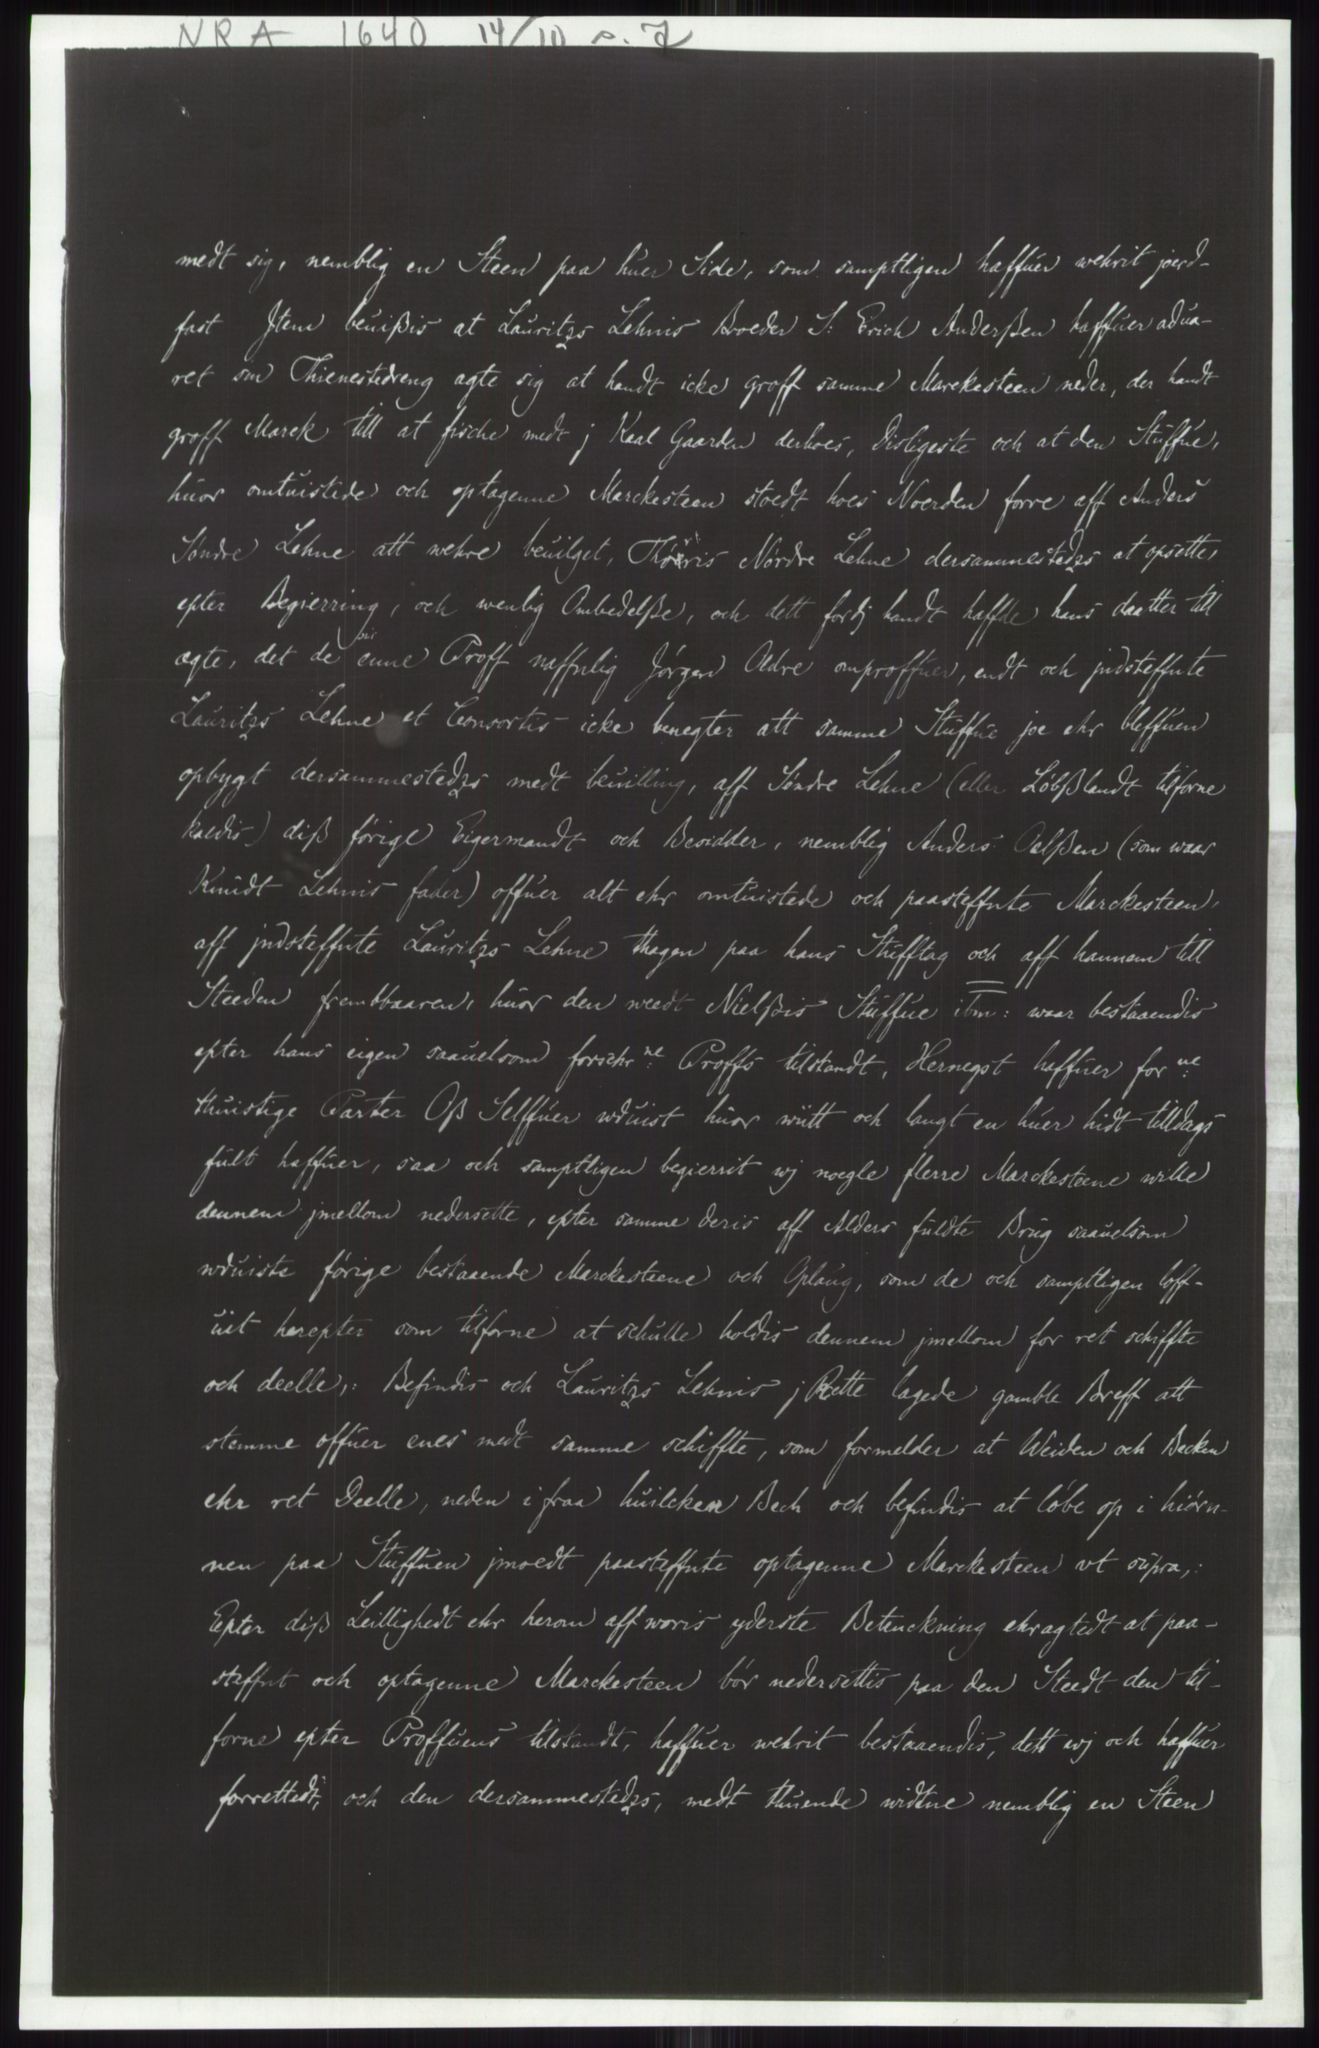 NRA 1640 14/10 s. 7
medt sig, nemblig en Steen paa huer Side, som samptligen haffuer wehrit joerd-
fast Jtem beuißis at Lauritzs Lehnis Broeder S: Erich Anderßen haffuer adua-
ret son Thienestedreng agte sig at handt icke groff samme Marckesteen neder, der handt
groff Marck till at fische medt j Kaal Gaarden derhoes, Disligeste och at den Stuffue,
huor omtuistede och optagenne Marckesteen stoedt hoes Noerden forre aff Anders
Søndre Lehne att wehre beuilget, Thorris Nørdre Lehne dersammestedzs at opsette,
epter Begierring, och wenlig Ombedelße, och dett fordj handt haffde hans daatter till
ægte, det de enne Proff naffnlig Jørgen Aldre omproffuer, endt och jndsteffnte
Lauritzs Lehne et Consortis icke benegter att samme Stuffue joe ehr bleffuen
opbygt dersammestedzs medt beuilling, aff Søndre Lehne (eller Løbßlandt tilforne
kaldis) diß førige Eigermandt och Besidder, nemblig Anders Oelßen (som waar
Knudt Lehnis fader) offuer alt ehr omtuistede och paasteffnte Marckesteen,
aff jndsteffnte Lauritzs Lehne thagen paa hans Stifftag och aff hannem till
Steeden frembbaaren, huor den weedt Nielßis Stuffue ibm: waar bestaaendis
epter hans eigen saauelsom forschr:ne Proffs tilstandt, Hernegst haffuer for:ne
thuistige Parter Oß Selffuer wduist huor wiitt och langt en huer hidt tilldags
fult haffuer, saa och samptligen begierrit wj noegle flerre Marckesteene wille
dennem jmellom nedersette, epter samme deris aff Alders fuldte Brug saauelsom
wduiste førige bestaaende Marckesteene och Oplaug, som de och samptligen loff-
uit herepter som tilforne at schulle holdis dennem jmellom for ret schiffte
och deelle,: Befindis och Lauritzs Lehnis j Rette lagede gamble Breff att
stemme offuer enes medt samme schiffte, som formelder at Weiden och Becken
ehr ret Deelle, neden i fraa huilcken Bech och befindis at løbe op i hiørn-
nen paa Stuffuen jmoedt paasteffnte optagenne Marckesteen vt supra,:
Epter diß Leillighedt ehr herom aff woris yderste Betenckning ehragtedt at paa-
steffnt och optagenne Marckesteen bør nedersettis paa den Steedt den til-
forne epter Proffuens tilstandt, haffuer wehrit bestaaendis, dett wj och haffuer
forrettedt, och den dersammestedzs, medt thuende widtne nemblig en Steen